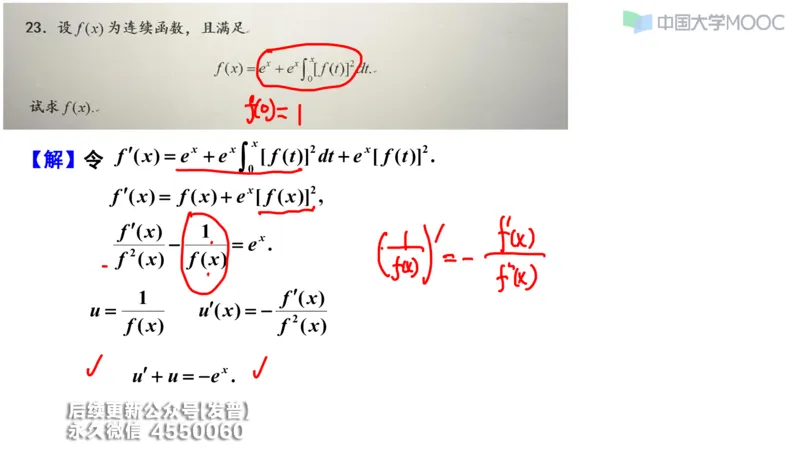 中国大学MOOC
23. 设 f(x) 为连续函数，且满足
f(x) = e^x + e^x ∫_0^x [f(t)]^2 dt.
试求 f(x).
f(0) = 1
【解】令 f′(x) = e^x + e^x ∫_0^x [f(t)]^2 dt + e^x [f(t)]^2.
f′(x) = f(x) + e^x [f(x)]^2,
f′(x)/f^2(x) − 1/f(x) = e^x.
(1/f(x))′ = − f′(x)/f^2(x)
u = 1/f(x)  u′(x) = − f′(x)/f^2(x)
u′ + u = −e^x.
后续更新公众号[发普]
永久微信 4550060